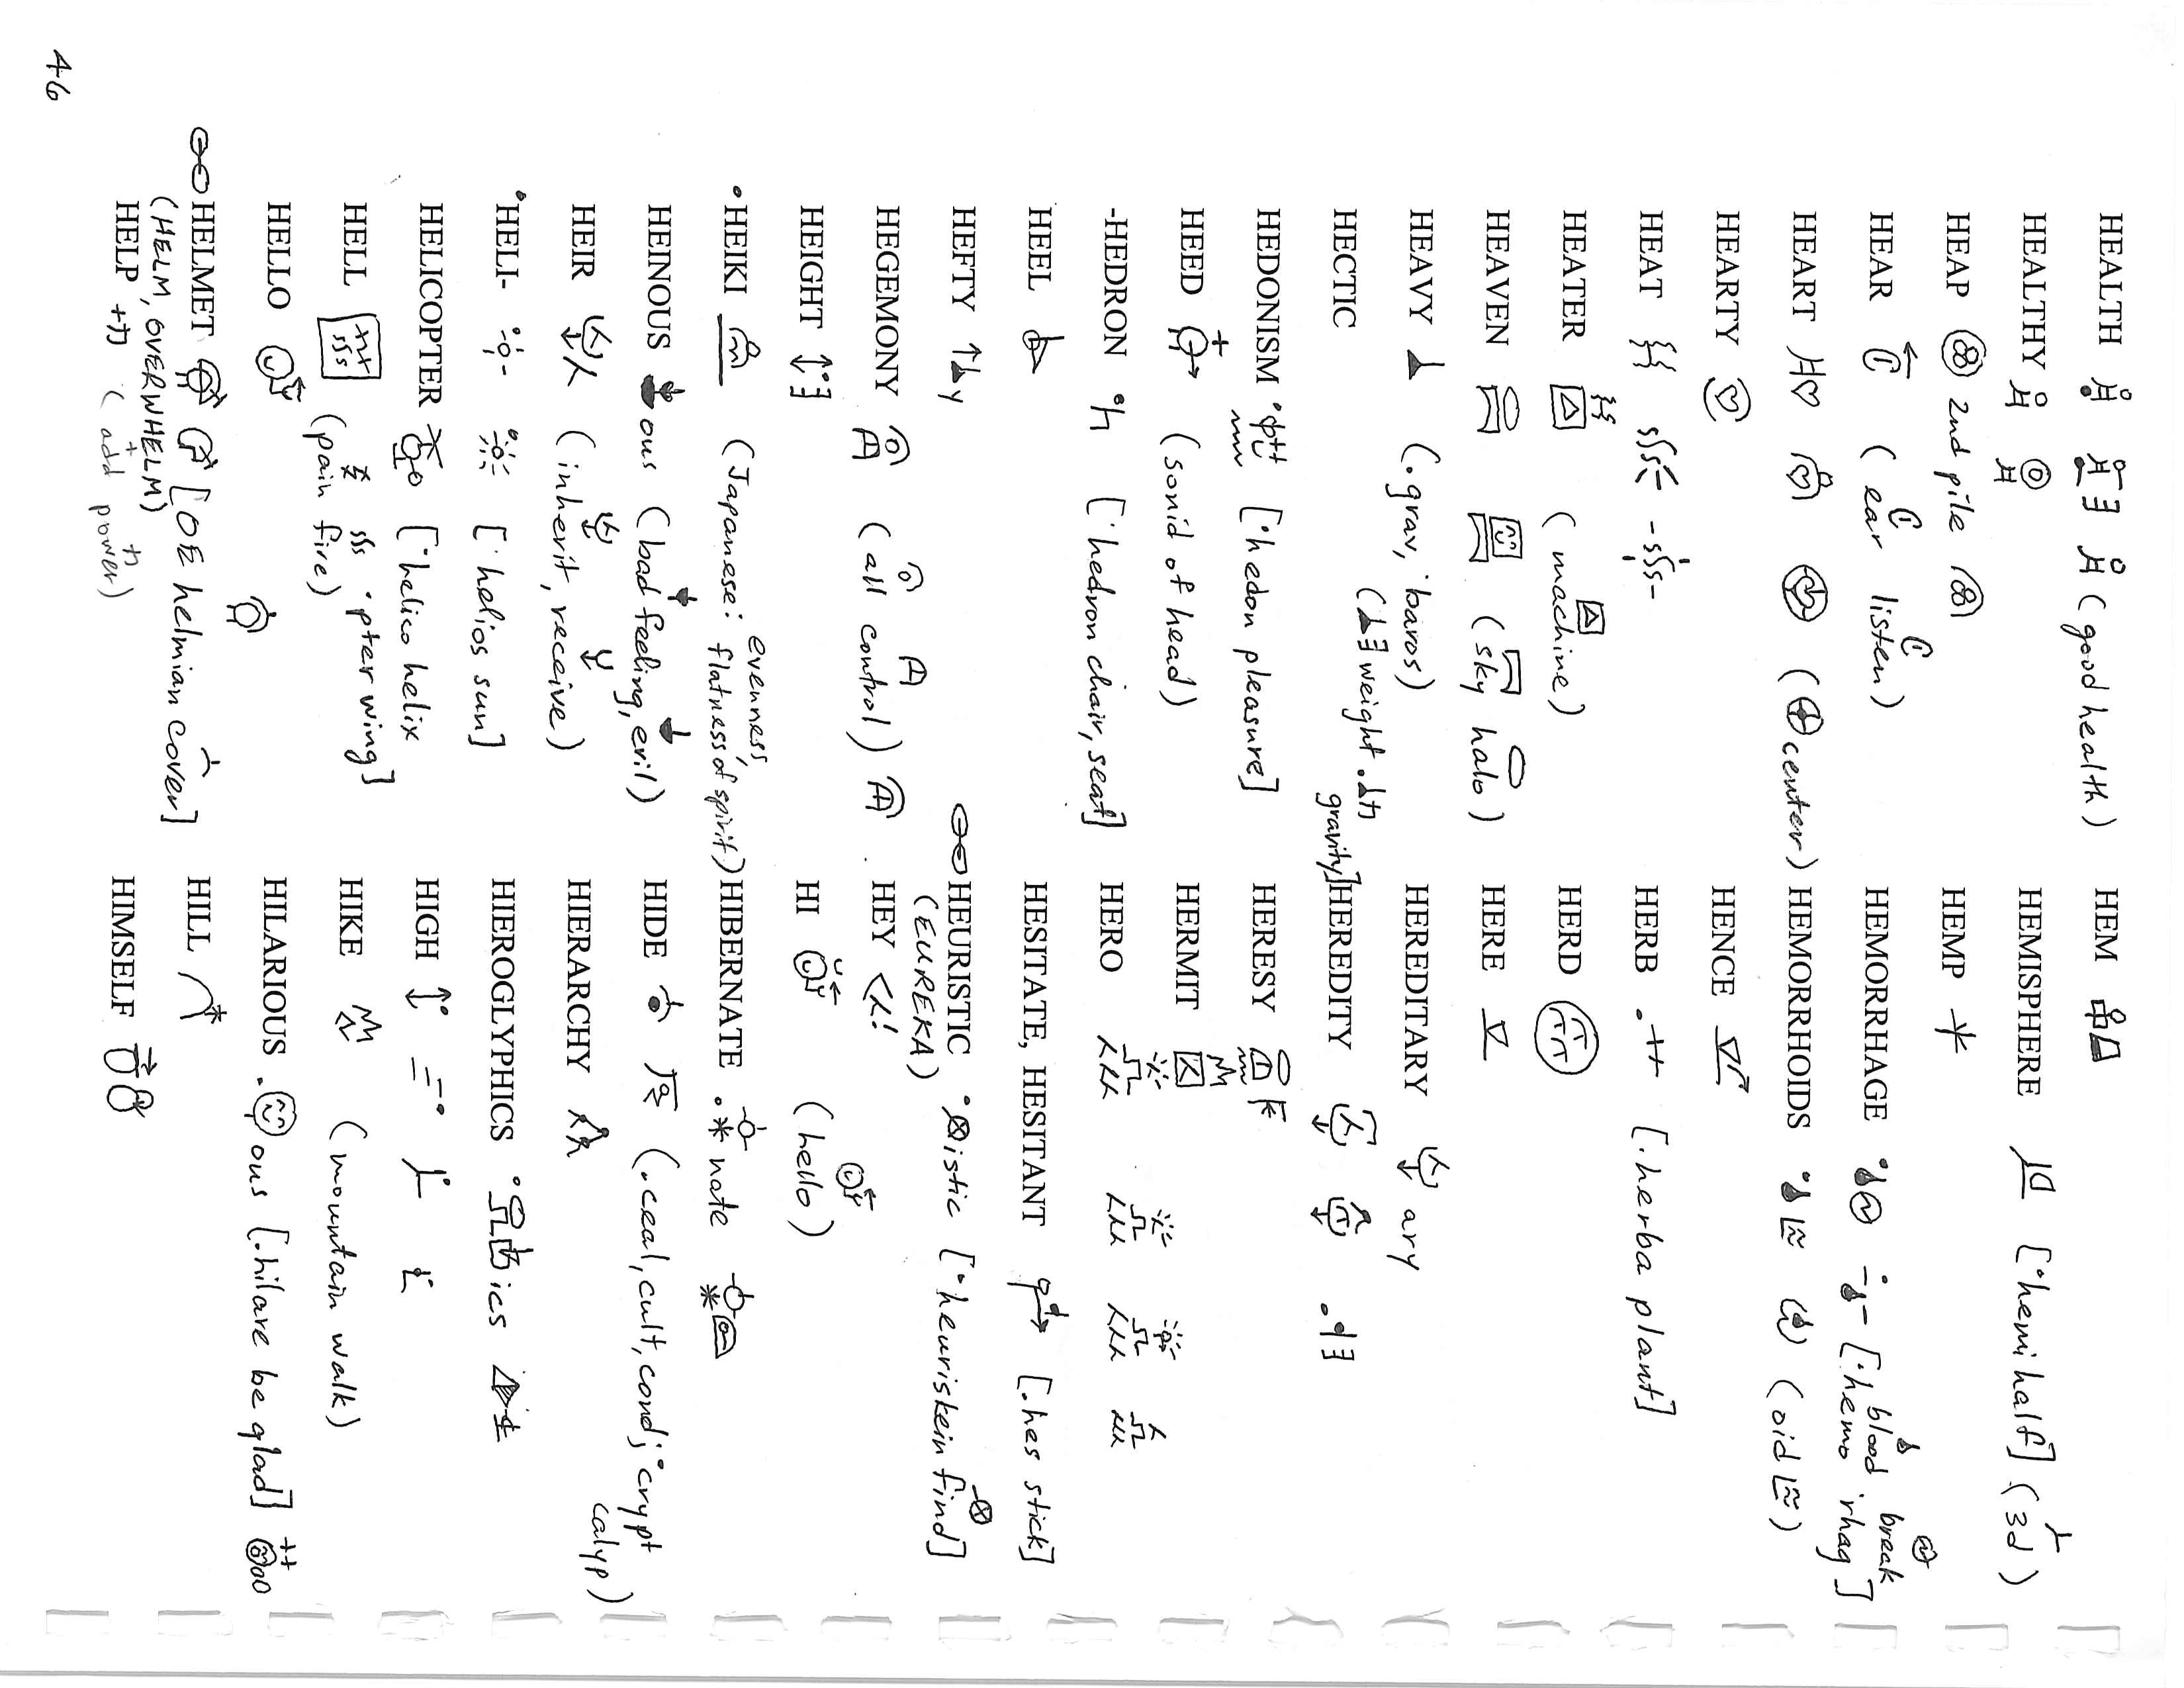 HEALTH (good health)
HEALTHY
HEAP 2nd pile
HEAR (ear listen)
HEART (center)
HEARTY
HEAT
HEATER (machine)
HEAVEN (sky halo)
HEAVY (.grav, ˙baros)
(weight . gravity]
HECTIC
HEDONISM [˙hedon pleasure]
HEED (sonid of head)
-HEDRON ˙h [˙hedron chair, seat]
HEEL
HEFTY y
HEGEMONY (all control)
HEIGHT
•HEIKI (Japanese: evenness, flatness of spirit)
HEINOUS ous (bad feeling, evil)
HEIR (inherit, receive)
•HELI- [˙helios sun]
HELICOPTER [˙helico helix
˙pter wing]
HELL (pain fire)
HELLO
HELMET [OE helmian cover]
(HELM, OVERWHELM)
HELP (add power)
46
HEM
HEMISPHERE [˙hemi half] (3d)
HEMP
HEMORRHAGE [˙hemo blood ˙rhag break]
HEMORRHOIDS (oid)
HENCE
HERB [.herba plant]
HERD
HERE
HEREDITARY ary
HEREDITY
HERESY
HERMIT
HERO
HESITATE, HESITANT [.hes stick]
HEURISTIC istic [˙heuriskein find]
(EUREKA)
HEY !
HI (hello)
HIBERNATE nate
HIDE (.ceal, cult, cond; ˙crypt
calyp)
HIERARCHY
HIEROGLYPHICS ics
HIGH
HIKE (mountain walk)
HILARIOUS ous [.hilare be glad]
HILL
HIMSELF